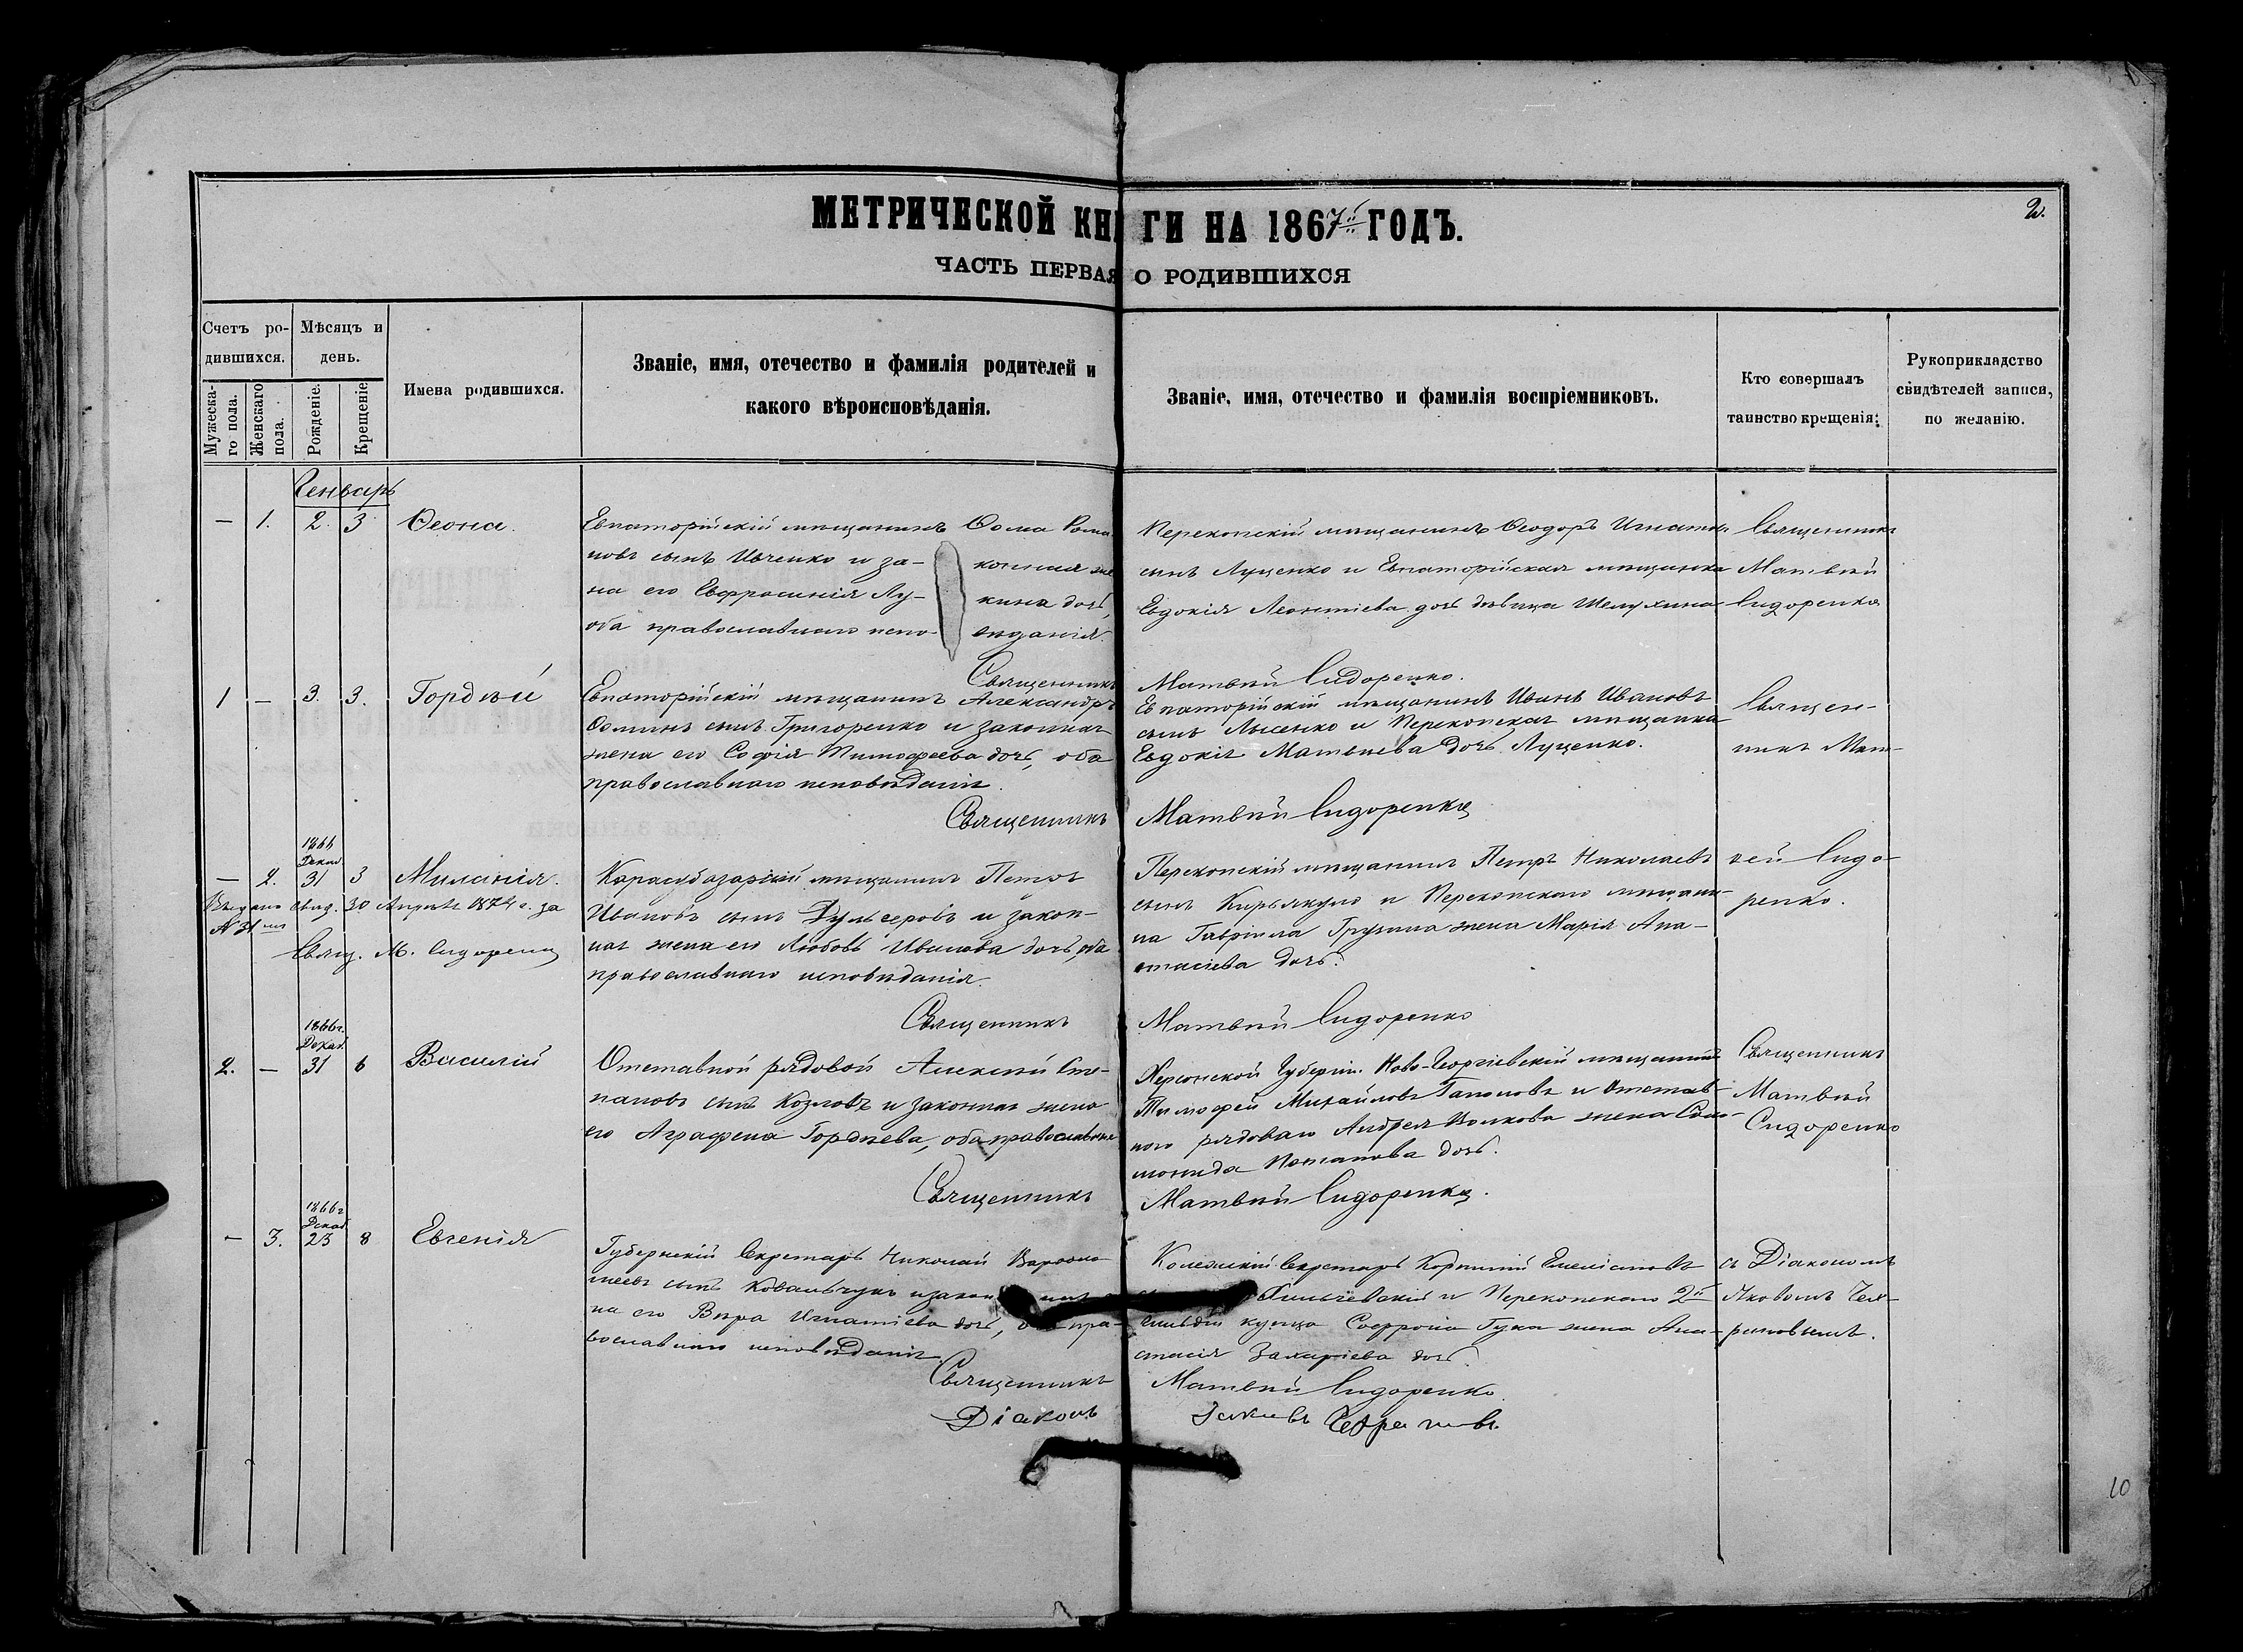 МЕТРИЧЕСКОЙ КНИГИ НА 1867й ГОДЪ.
2.
ЧАСТЬ ПЕРВАЯ О РОДИВШИХСЯ
Счетъ ро-
дившихся.
Мѣсяцъ и
день.
Мужеска-
го пола.
Женскаго
пола.
Рожденіе.
Крещеніе.
Имена родившихся.
Званіе, имя, отечество и фамилія родителей и
какого вѣроисповѣданія.
Званіе, имя, отечество и фамилія воспріемниковъ.
Кто совершалъ
таинство крещенія.
Рукоприкладство
свидѣтелей записи,
по желанію.
Генварь
— 1. 2. 3 Ѳеона.
Евпаторійскій мѣщанинъ Ѳома Рома
новъ сынъ Ивченко и за- конная же
на его Евфросинія Лу- кина дочь,
оба православнаго испо- вѣданія.
Перекопскій мѣщанинъ Ѳеодоръ Игнатов
сынъ Луценко и Евпаторійская мѣщанка
Евдокія Леонтіева дочь дѣвица Шелухина
Священникъ
Матвѣй
Сидоренко
Священникъ Матвѣй Сидоренко.
1 — 3. 3. Гордѣй
Евпаторійскій мѣщанинъ Александръ
Ѳоминъ сынъ Григоренко и законная
жена его Софія Тимофеева дочь, оба
православнаго исповѣданія.
Евпаторійскій мѣщанинъ Иванъ Ивановъ
сынъ Лысенко и Перекопская мѣщанка
Евдокія Матвѣева дочь Луценко.
Священ-
никъ Мат-
Священникъ Матвѣй Сидоренко
1866
Декаб.
— 2. 31 3 Миланія.
Выдано свид. 30 Апрѣля 1874 г. за
Свящ. М. Сидоренко
Карасубазарскій мѣщанинъ Петръ
Ивановъ сынъ Дульгеровъ и закон-
ная жена его Любовь Иванова дочь, оба
православнаго исповѣданія.
Перекопскій мѣщанинъ Петръ Николаевъ
сынъ Кирьякуло и Перекопскаго мѣщани-
на Гавріила Грузина жена Марія Ана-
стасіева дочь.
вѣй Сидо-
ренко.
Священникъ Матвѣй Сидоренко
1866 г.
Декаб.
2. — 31 6 Василій
Отставной рядовой Алексѣй Сте-
пановъ сынъ Козловъ и законная жена
его Аграфена Гордѣева, оба православные
Херсонской Губерніи Ново-Георгіевскій мѣщанинъ
Тимофей Михайловъ Гапоновъ и Отстав-
ного рядоваго Андрея Волкова жена Соло-
монида Потапова дочь.
Священникъ
Матвѣй
Сидоренко
Священникъ Матвѣй Сидоренко.
1866 г
Декаб.
— 3. 23 8 Евгенія
Губернскій Секретарь Николай Варѳоло
меевъ сынъ Ковальчукъ и закон
на его Вѣра Игнатіева дочь, пра-
вославнаго исповѣданія
Колежскій Секретарь Корнилій Емеліановъ
и Перекопскаго 2й
гильдіи купца Софронія Гука жена Ана-
стасія Захаріева дочь.
съ Діакономъ
Яковомъ Чех-
рановымъ.
Священникъ Матвѣй Сидоренко.
Діаконъ Іаковъ
10